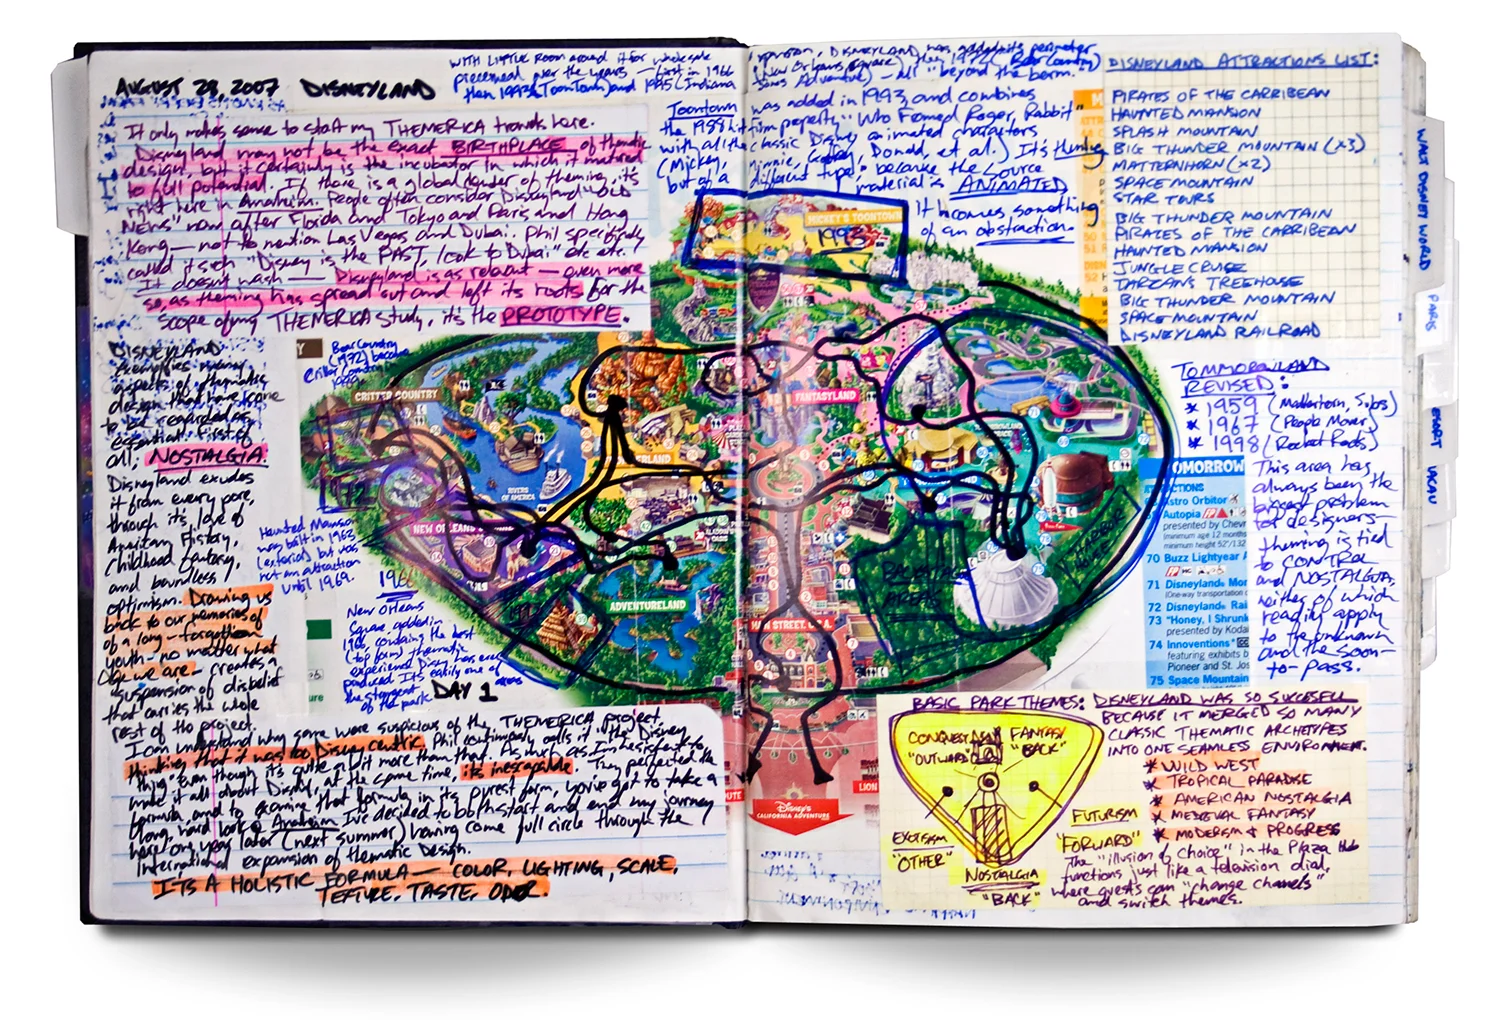 AUGUST 29, 2007 DISNEYLAND
WITH LITTLE ROOM around it for wholesale
piecemeal over the years — first in 1966
then 1993 (ToonTown) and 1995 (Indiana
expansion, DISNEYLAND has added its perimeter
(New Orleans Square) then 1972 (Bear Country)
Jones Adventure) — all "beyond the berm."
It only makes sense to start my THEMERICA travels here.
Disneyland may not be the exact BIRTHPLACE of thematic
design, but it certainly is the incubator in which it matured
to full potential. If there is a global center of theming, it's
right here in Anaheim. People often consider Disneyland "OLD
NEWS" now after Florida and Tokyo and Paris and Hong
Kong — not to mention Las Vegas and Dubai. Phil specifically
called it such "Disney is the PAST, look to Dubai" etc etc.
It doesn't wash — Disneyland is as relevant — even more
so, as theming has spread out and left its roots for the
scope of my THEMERICA study, it's the PROTOTYPE.
Toontown was added in 1993, and combines
the 1988 hit film property "Who Framed Roger Rabbit"
with all the classic Disney animated characters
(Mickey, Minnie, Goofy, Donald, et al.) It's theming
but of a different type; because the source
material is ANIMATED
It becomes something
of an abstraction.
DISNEYLAND ATTRACTIONS LIST:
PIRATES OF THE CARRIBEAN
HAUNTED MANSION
SPLASH MOUNTAIN
BIG THUNDER MOUNTAIN (x3)
MATTERNHORN (x2)
SPACE MOUNTAIN
STAR TOURS
BIG THUNDER MOUNTAIN
PIRATES OF THE CARRIBEAN
HAUNTED MANSION
JUNGLE CRUISE
TARZANS TREEHOUSE
BIG THUNDER MOUNTAIN
SPACE MOUNTAIN
DISNEYLAND RAILROAD
WALT DISNEY WORLD
PARIS
MICKEY'S TOONTOWN
1993
DISNEYLAND
exemplifies many
aspects of thematic
design that have come
to be regarded as
essential. First of
all, NOSTALGIA.
Disneyland exudes
it from every pore,
through its love of
American History,
Childhood fantasy,
and boundless
optimism. Drawing us
back to our memories of
of a long-forgotten
youth — no matter what
age we are — creates a
"suspension of disbelief"
that carries the whole
rest of the project.
Bear Country
(1972) became
Critter Country
CRITTER COUNTRY
1972
RIVERS OF AMERICA
FANTASYLAND
NEW ORLEANS
ADVENTURELAND
MAIN STREET, U.S.A.
Haunted Mansion
was built in 1963
(exterior) but was
not an attraction
until 1969.
1966
New Orleans
Square added in
1966, containing the best
(top form) thematic
experience Disney has ever
produced. It's easily one of
the strongest areas
of the park
DAY 1
TOMMOROWLAND
REVISED:
* 1959 (Matterhorn, Subs)
* 1967 (People Mover)
* 1998 (Rocket Rods)
This area has
always been the
biggest problem
for designers
theming is tied
to CONTROL
and NOSTALGIA,
neither of which
readily apply
to the unknown
and the soon-
to-pass.
TOMORROW
Astro Orbitor
Autopia
presented by Chev
70 Buzz Lightyear A
71 Disneyland Mon
(One-way transportation
72 Disneyland Rai
73 "Honey, I Shrunk
presented by Koda
74 Innoventions
featuring exhibits b
Pioneer and St. Jos
75 Space Mountain
I can understand why some were suspicious of the THEMERICA project,
thinking that it was too Disney centric, Phil continuously calls it "the Disney
thing" even though it's quite a bit more than that. As much as I'm hesistent to
make it all about Disney, at the same time, its inescapable. They perfected the
formula, and to examine that formula in its purest form, you've got to take a
long, hard look @ Anaheim I've decided to both start and end my journey
here one year later (next summer) having come full circle through the
International expansion of thematic Design.
IT'S A HOLISTIC FORMULA — COLOR, LIGHTING, SCALE,
TEXTURE, TASTE, ODOR
Disney's
CALIFORNIA ADVENTURE
BASIC PARK THEMES:
CONQUEST
"OUTWARD"
FANTASY
"BACK"
EXOTISISM
"OTHER"
FUTURISM
"FORWARD"
NOSTALGIA
"BACK"
DISNEYLAND WAS SO SUCCESFULL
BECAUSE IT MERGED SO MANY
CLASSIC THEMATIC ARCHETYPES
INTO ONE SEAMLESS ENVIRONMENT.
* WILD WEST
* TROPICAL PARADISE
* AMERICAN NOSTALGIA
* MEDIEVAL FANTASY
* MODERISM & PROGRESS
The "illusion of choice" in the Plaza Hub
functions just like a television dial,
where guests can "change channels"
and switch themes.